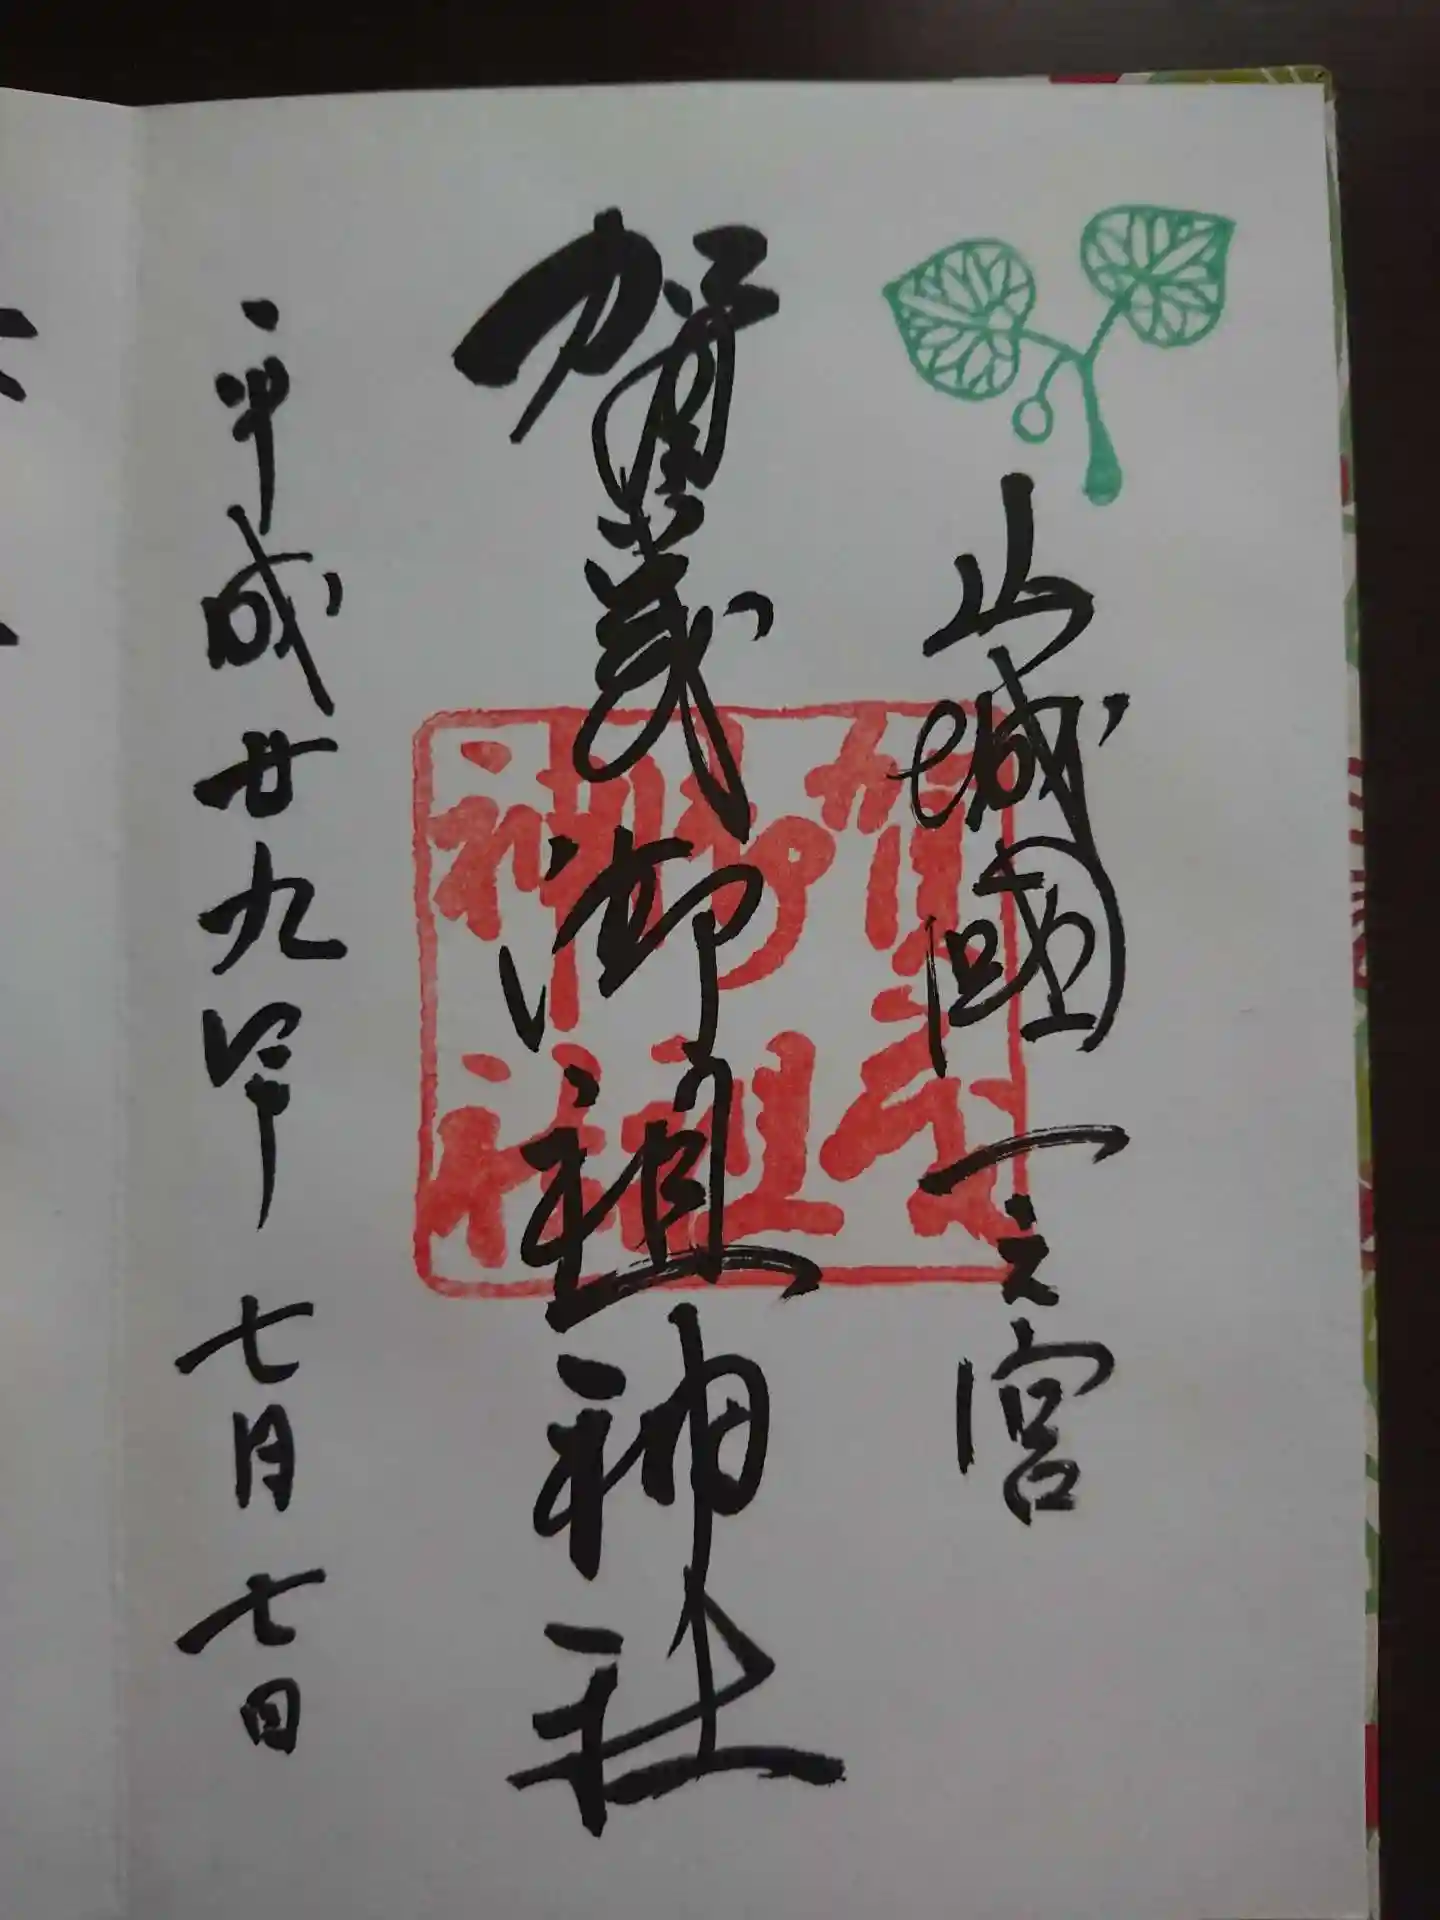 山城國一之宮
賀茂御祖神社
平成廿九年 七月七日
賀茂
御祖
神社